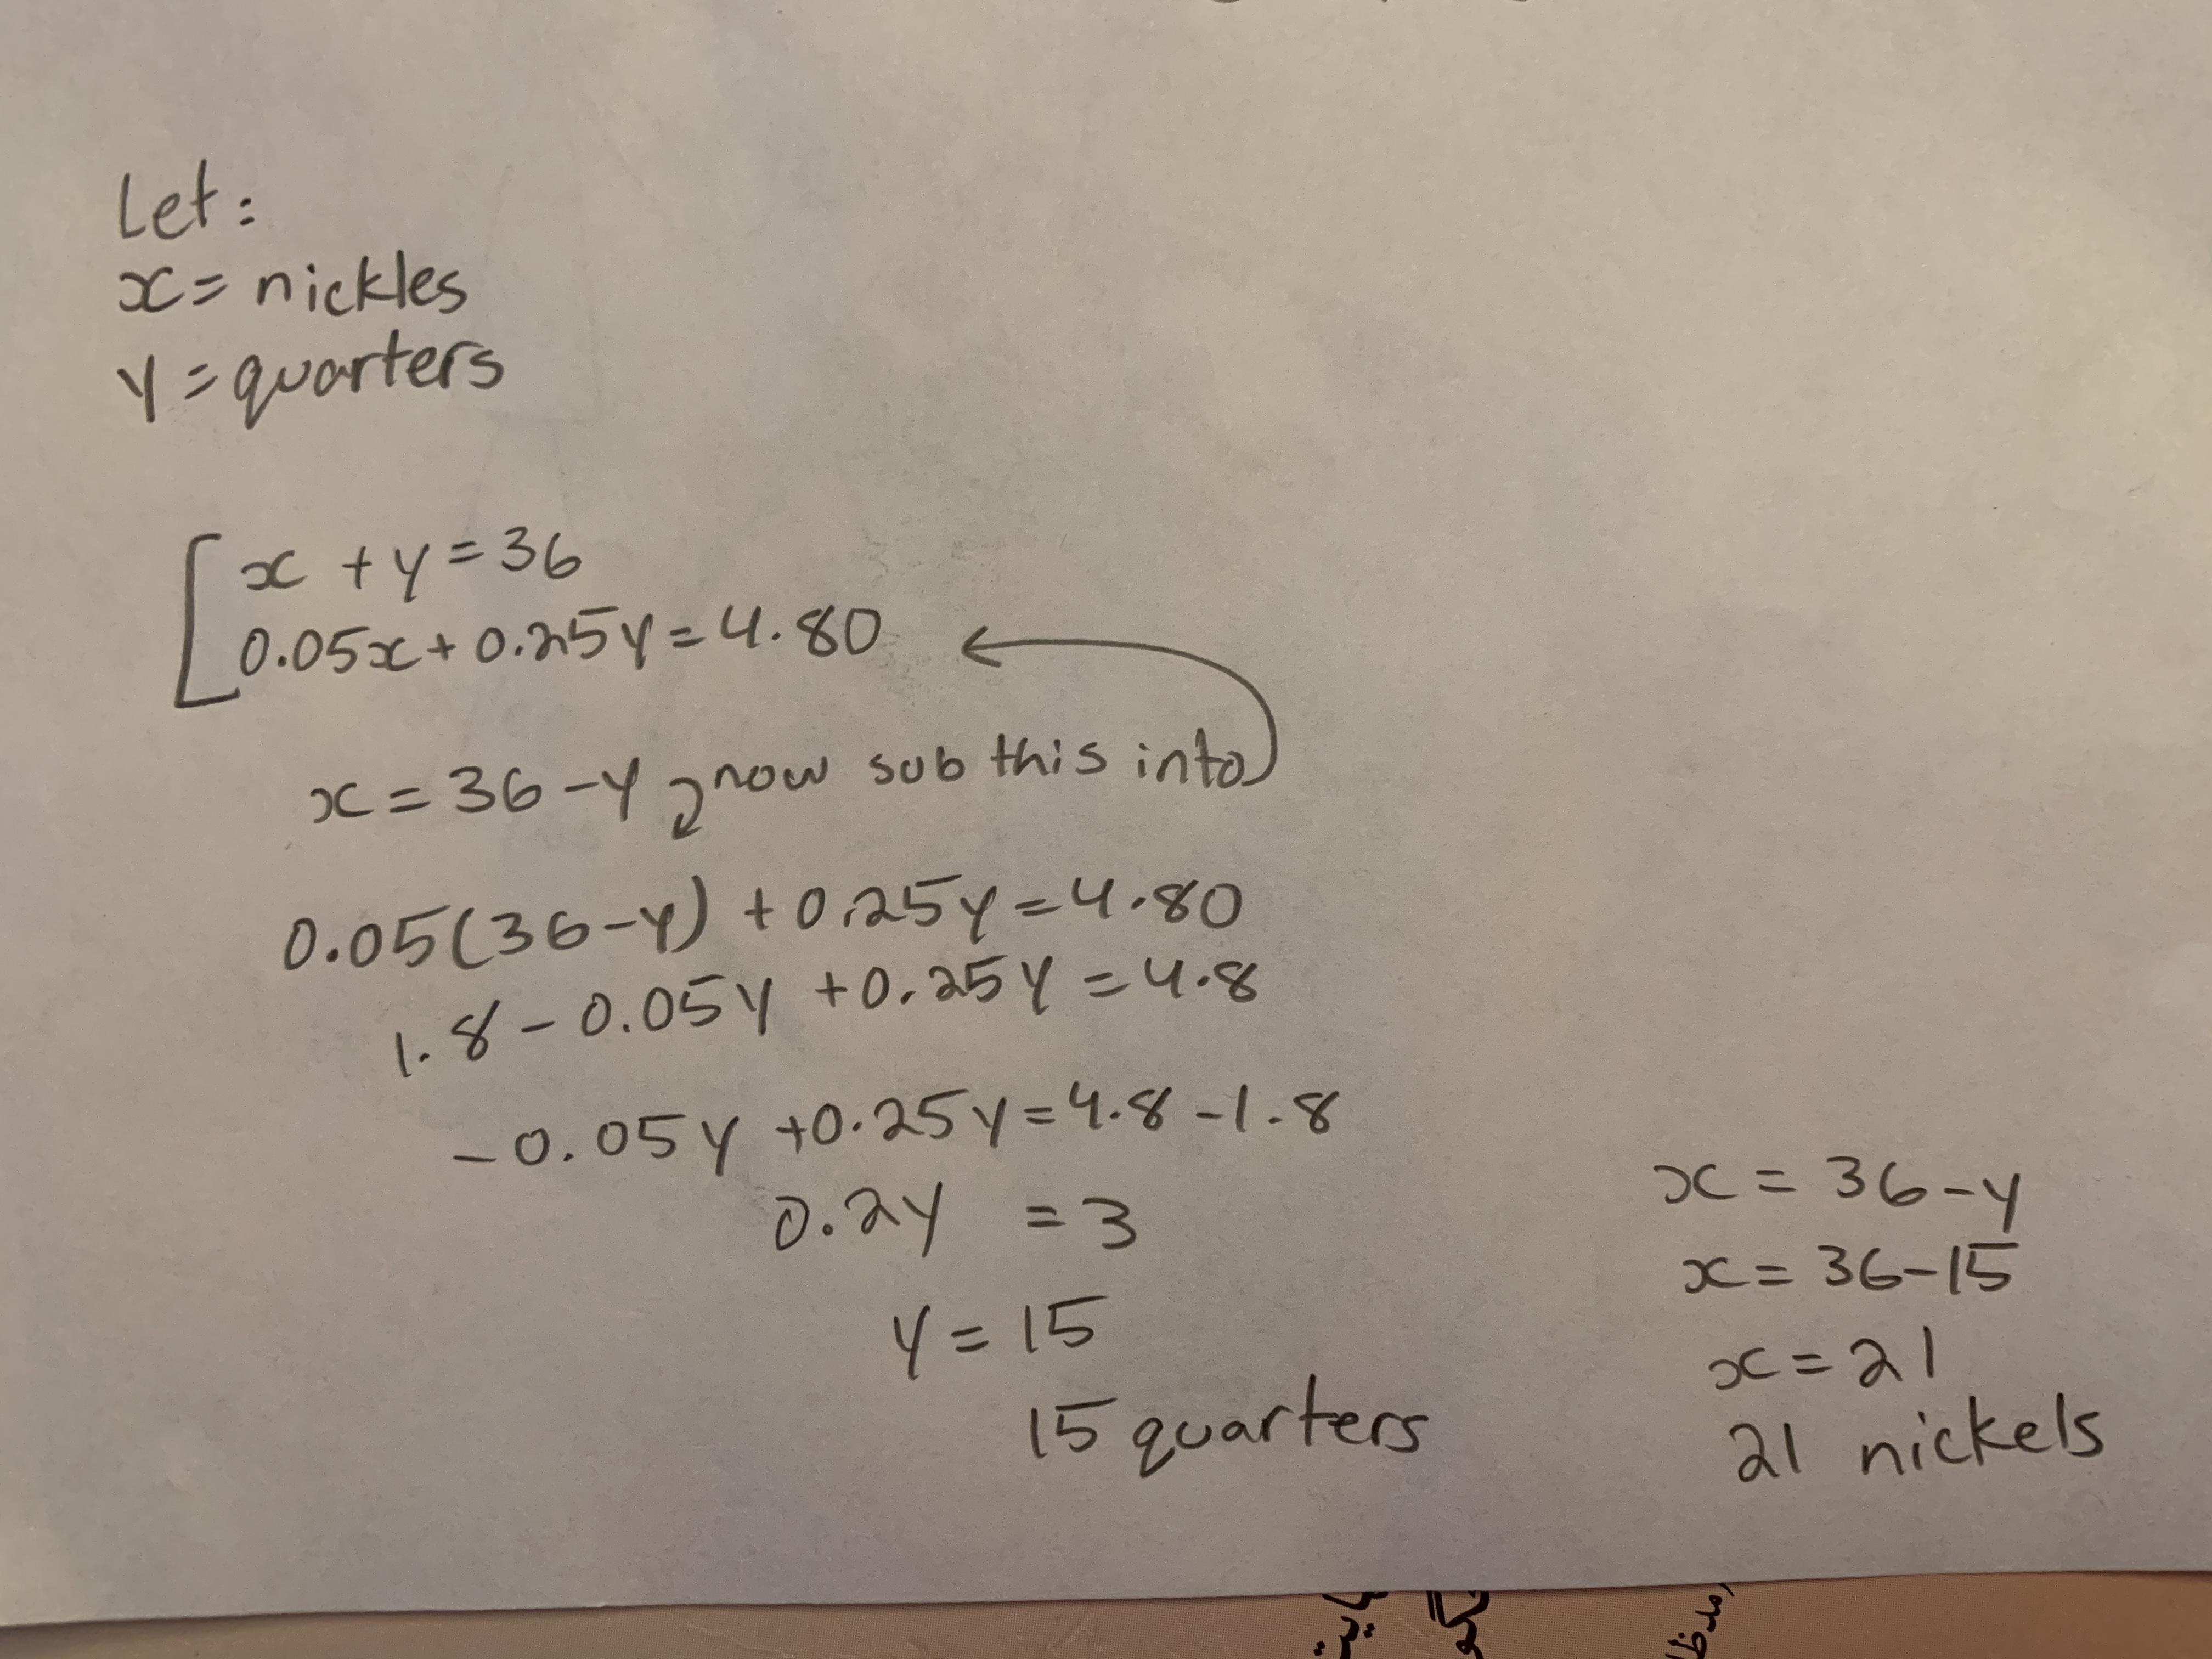 Let:
x = nickles
y = quarters
x + y = 36
0.05x + 0.25y = 4.80
x = 36 - y now sub this into
0.05(36-y) + 0.25y = 4.80
1.8 - 0.05y + 0.25y = 4.8
-0.05y + 0.25y = 4.8 - 1.8
0.2y = 3
y = 15
15 quarters
x = 36 - y
x = 36 - 15
x = 21
21 nickels